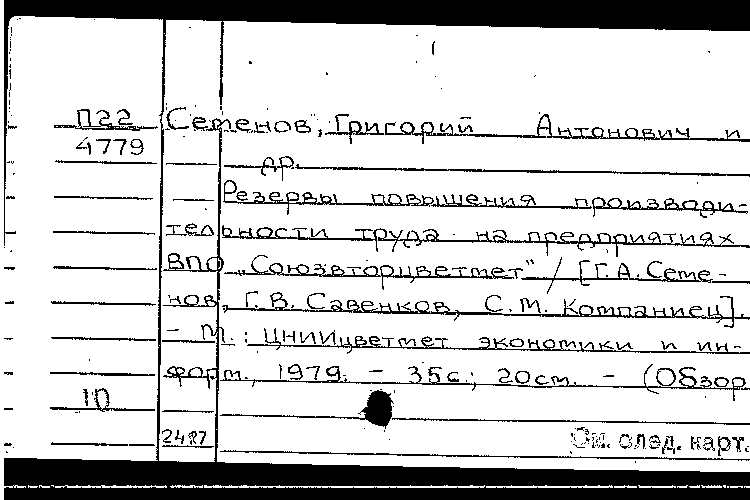 П22 Семенов, Григорий Антонович и
4779 др.
Резервы повышения производи-
тельности труда на предприятиях
ВПО „Союзвторцветмет" / [Г.А. Семе-
нов, Г.В. Савенков, С.М. Компаниец].
- М.: ЦНИИцветмет экономики и ин-
форм., 1979. - 35с.; 20см. - (Обзор
10
2487 См. след. карт.